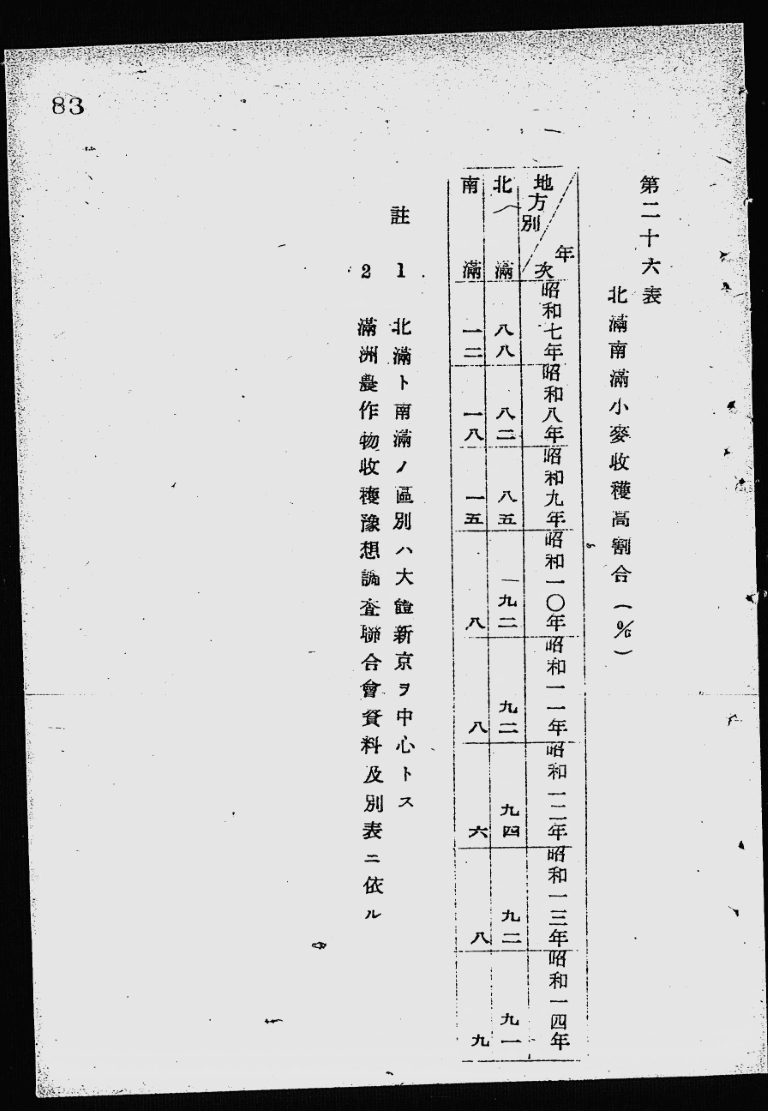 83
第二十六表
北滿南滿小麥收穫高割合（%）
地方別 年次 昭和七年 昭和八年 昭和九年 昭和一〇年 昭和一一年 昭和一二年 昭和一三年 昭和一四年
北滿 八八 八二 八五 九二 九二 九四 九二 九一
南滿 一二 一八 一五 八 八 六 八 九
註 1 北滿ト南滿ノ區別ハ大體新京ヲ中心トス
2 滿洲農作物收穫豫想調査聯合會資料及別表ニ依ル